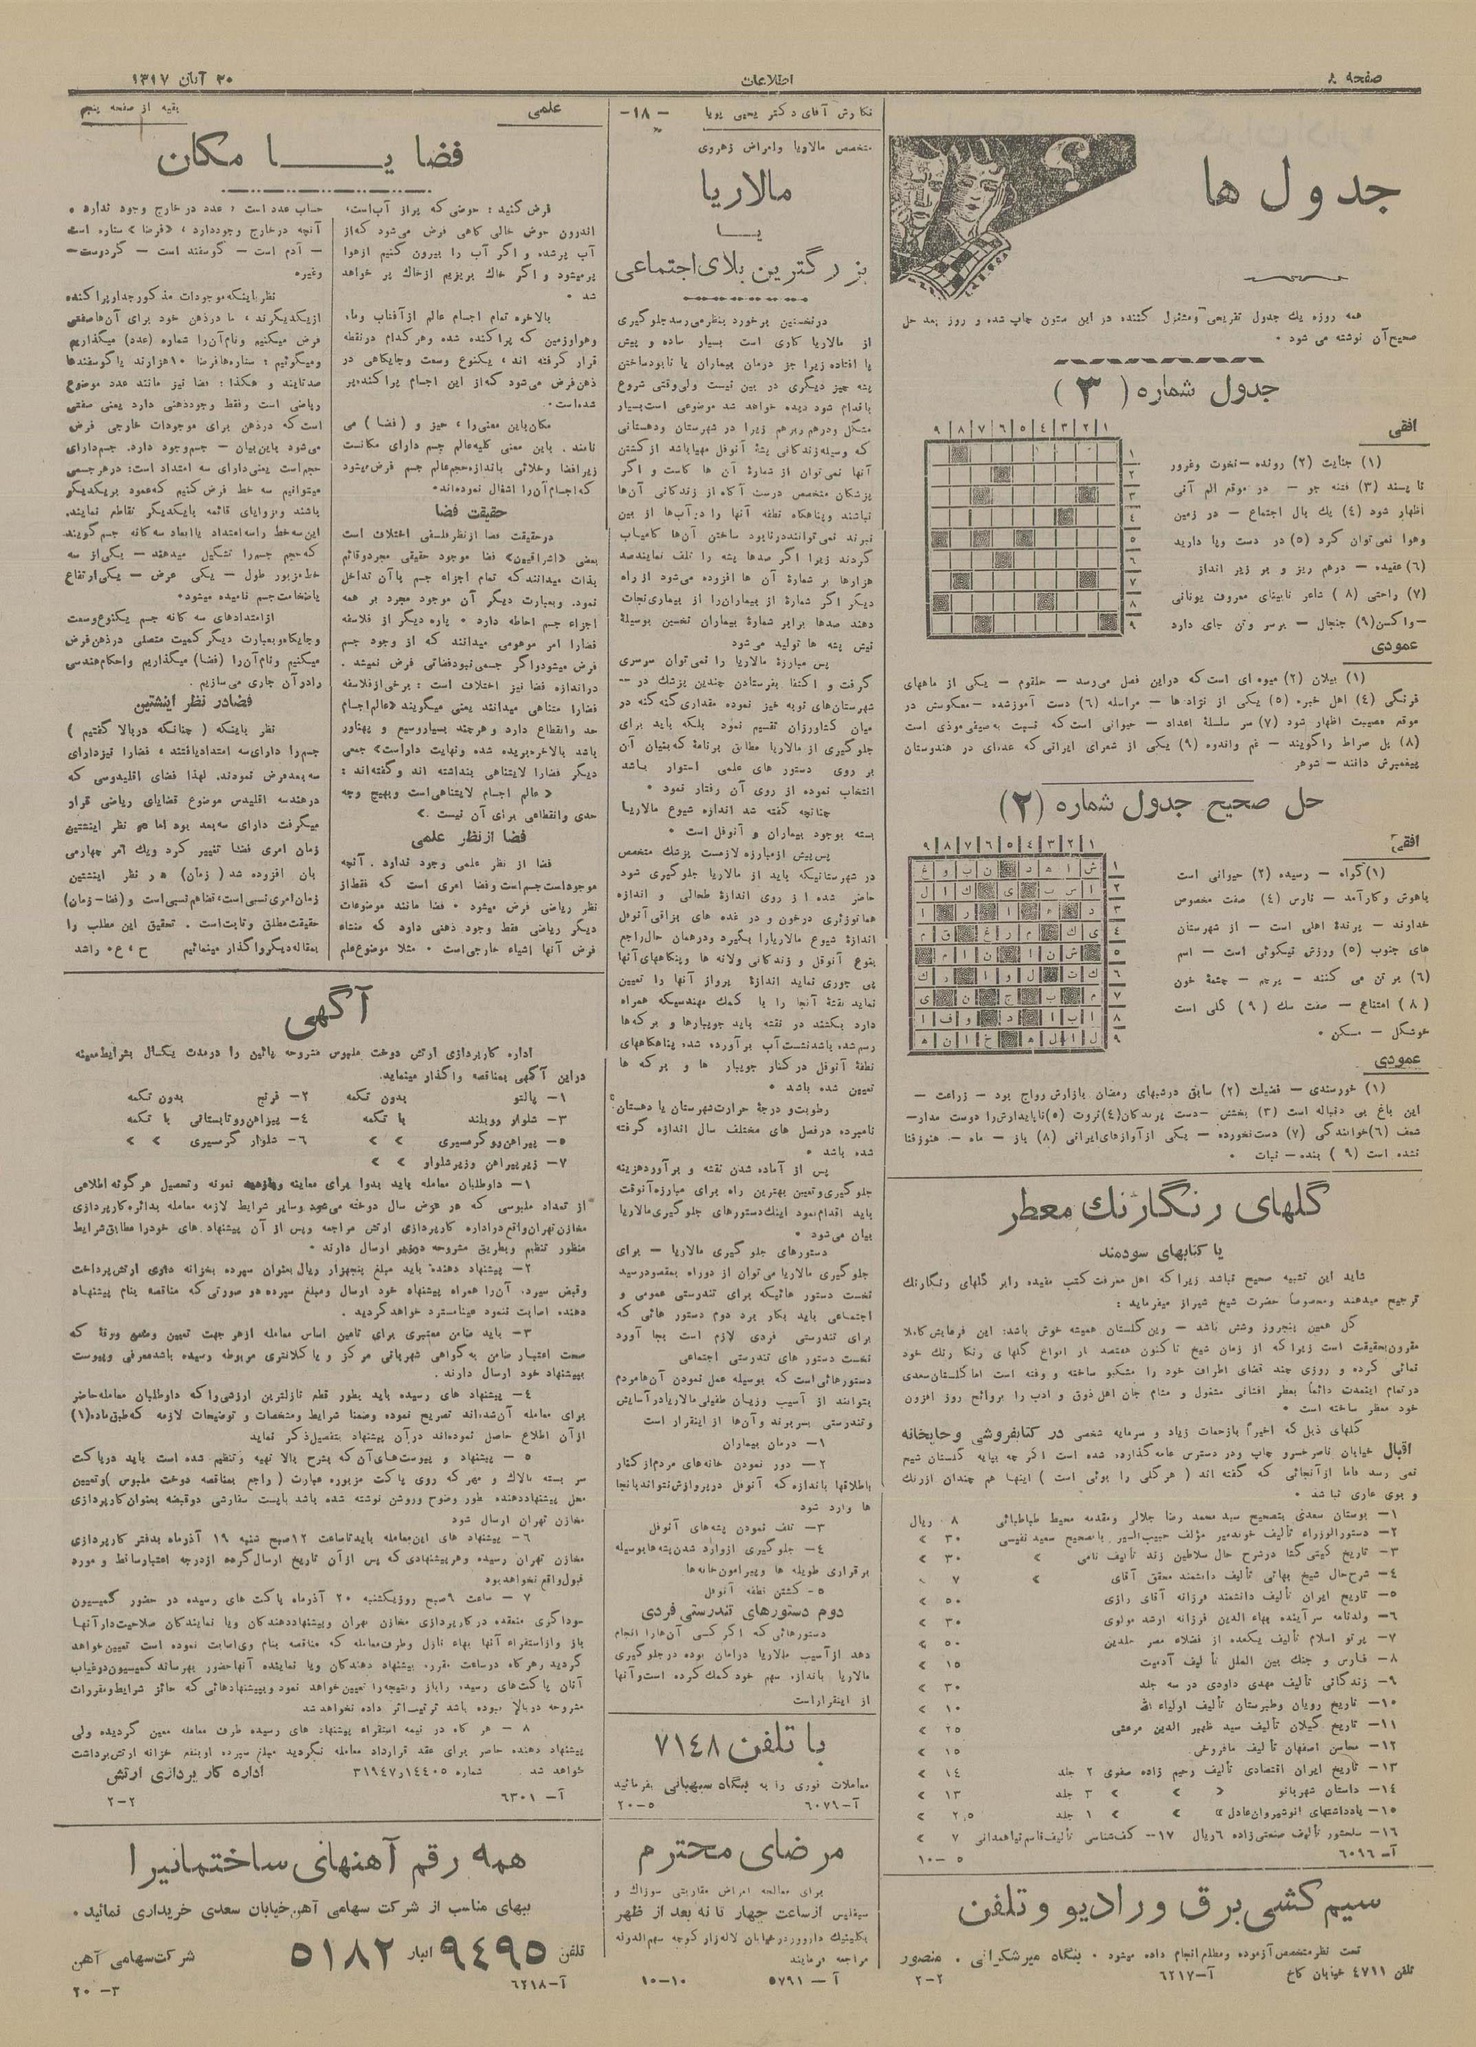 صفحه ۸
اطلاعات
۳۰ آبان ۱۳۱۷
جدول ها
همه روزه یك جدول تفریحی ومشغول کننده در این ستون چاپ شده و روز بعد حل
صحیح آن نوشته می شود .
جدول شماره ( ۳ )
افقی
(۱) جنایت (۲) رونده – نخوت وغرور
نا پسند (۳) فتنه جو – در موقع الم آنی
اظهار شود (٤) یك بال اجتماع – در زمین
وهوا نمی توان کرد (٥) در دست وپا دارید
(٦) عقیده – درهم ریز و بر زیر انداز
(۷) راحتی (۸ ) شاعر نابینای معروف یونانی
– واکسن (۹) جنجال – برسر وتن جای دارد
عمودی
(۱) بیلان (۲) میوه ای است که دراین فصل می‌رسد – حلقوم – یکی از ماههای
فرنگی (٤) اهل خبره (٥) یکی از نژاد ها – مراسله (٦) دست آموزشده – معکوسش در
موقع مصیبت اظهار شود (۷) سر سلسلهٔ اعداد – حیوانی است که نسبت به صیفی موذی است
(۸) پل صراط راگویند – غم واندوه (۹) یکی از شعرای ایرانی که عده‌ای در هندوستان
پیغمبرش دانند – شوهر
حل صحیح جدول شماره (۲)
افقی
(۱) گواه – رسیده (۲) حیوانی است
باهوش وکارآمد – نارس (٤) صفت مخصوص
خداوند – پرندهٔ اهلی است – از شهرستان
های جنوب (٥) ورزش نیکوئی است – اسم
(٦) بر تن می کنند – پرچم – چشمهٔ خون
(۸ ) امتناع – صفت سك ( ۹ ) گلی است
خوشگل – مسکن .
عمودی
(۱) خورسندی – فضیلت (۲) سابق درشبهای رمضان بازارش رواج بود – زراعت –
این باغ بی دنباله است (۳) بخشش – دست پرندگان (٤) ثروت (٥) ناپایدارش را دوست مدار –
ضعف (٦) خوانندگی (۷) دست نخورده – یکی از آوازهای ایرانی (۸) باز – ماه – هنوز فنا
نشده است ( ۹ ) بنده – نبات .
گلهای رنگارنك معطر
یا کتابهای سودمند
شاید این تشبیه صحیح نباشد زیرا که اهل معرفت کتب مفیده را بر گلهای رنگارنك
ترجیح میدهند ومخصوصاً حضرت شیخ شیراز میفرماید :
گل همین پنجروز وشش باشد – وین گلستان همیشه خوش باشد: این فرمایش کاملا
مقرون بحقیقت است زیرا که از زمان شیخ تا کنون هفتصد بار انواع گلهای رنگا رنك خود
نمائی کرده و روزی چند فضای اطراف خود را مشکبو ساخته و رفته است اما گلستان سعدی
در تمام اینمدت دائماً بعطر افشانی مشغول و مشام جان اهل ذوق و ادب را بروائح روز افزون
خود معطر ساخته است .
گلهای ذیل که اخیراً بازحمات زیاد و سرمایه شخصی در کتابفروشی و چاپخانه
اقبال خیابان ناصرخسرو چاپ ودر دسترس عامه گذارده شده است اگر چه بپایه گلستان شیخ
نمی رسد فاما از آنجائی که گفته اند ( هر گلی را بوئی است ) اینها هم چندان از رنك
و بوی عاری نباشد .
۱– بوستان سعدی بتصحیح سید محمد رضا جلالی ومقدمه محیط طباطبائی ۸ ریال
۲– دستورالوزراء تألیف خوندمیر مؤلف حبیب السیر باتصحیح سعید نفیسی ۳۰ »
۳– تاریخ گیتی گشا درشرح حال سلاطین زند تألیف نامی » ۳۰ »
٤– شرح حال شیخ بهائی تألیف دانشمند محقق آقای » ۷
٥– تاریخ ایران تألیف دانشمند فرزانه آقای رازی ٥۰ »
٦– ولدنامه سر آینده بهاء الدین فرزانه ارشد مولوی ۳۰ »
۷– پرتو اسلام تألیف یکعده از فضلاء مصر جلدین ٥۰ »
۸– فارس و جنك بین الملل تألیف آدمیت ۱٥ »
۹– زندگانی تألیف مهدی داودی در سه جلد ۳۰ »
۱۰– تاریخ رویان وطبرستان تألیف اولیاء الله ۱۰ »
۱۱– تاریخ گیلان تألیف سید ظهیر الدین مرعشی ۲٥ »
۱۲– محاسن اصفهان تألیف مافروخی ۱٥ »
۱۳– تاریخ ایران اقتصادی تألیف رحیم زاده صفوی ۲ جلد ۱٤ »
۱٤– داستان شهربانو » » ۳ جلد ۱۳ »
۱٥– یادداشتهای انوشیروان عادل » » ۱ جلد ۲٫٥ »
۱٦– سلحشور تألیف صنعتی زاده ٦ ریال ۱۷–– کف شناسی تألیف قاسم نیا همدانی ۷ »
آ– ٦۰۹٦ ٥ –۱۰
سیم کشی برق و رادیو و تلفن
تحت نظر متخصص آزموده ومطلع انجام داده میشود . بنگاه میرشکرائی . منصور
تلفن ٤۷۱۱ خیابان کاخ آ–٦۲۱۷ ۲–۲
نگارش آقای دکتر یحیی پویا –۱۸–
متخصص مالاریا وامراض زهروی
مالاریا
یا
بزرگترین بلای اجتماعی
درنخستین برخورد بنظر می رسد جلوگیری
از مالاریا کاری است بسیار ساده و پیش
پا افتاده زیرا جز درمان بیماران یا نابودساختن
پشه چیز دیگری در بین نیست ولی وقتی شروع
باقدام شود دیده خواهد شد موضوعی است بسیار
مشکل ودرهم زیرا در شهرستان ودهستانی
که وسیله زندگانی پشهٔ آنوفل مهیا باشد از کشتن
آنها نمی توان از شمارهٔ آن ها کاست و اگر
پزشکان متخصص درست آگاه از زندگانی آن‌ها
نباشند وپناهگاه نطفه آنها را در آب‌ها از بین
نبرند نمی‌توانند درنابود ساختن آن‌ها کامیاب
گردند زیرا اگر صدها پشه را تلف نمایند صد
هزارها بر شمارهٔ آن ها افزوده می‌شود از راه
دیگر اگر شمارهٔ از بیماران را از بیماری نجات
دهند صدها برابر شمارهٔ بیماران نخستین بوسیلهٔ
نیش پشه ها تولید می‌شود
پس مبارزهٔ مالاریا را نمی‌توان سرسری
گرفت و اکتفا بفرستادن چندین پزشك در ––
شهرستان‌های نوبه خیز نموده مقداری گنه گنه در
میان کشاورزان تقسیم نمود بلکه باید برای
جلوگیری از مالاریا مطابق برنامهٔ که بنیان آن
بر روی دستور های علمی استوار باشد
انتخاب نموده از روی آن رفتار نمود .
چنانچه گفته شد اندازه شیوع مالاریا
بسته بوجود بیماران و آنوفل است .
پس پیش از مبارزه لازمست پزشك متخصص
در شهرستانیکه باید از مالاریا جلوگیری شود
حاضر شده از روی اندازهٔ طحالی و اندازه
هماتوزئری درخون و در غده های بزاقی آنوفل
اندازهٔ شیوع مالاریارا بگیرد ودرهمان حال راجع
بنوع آنوفل و زندگانی ولانه ها وپنگاههای آنها
پی جوری نماید اندازهٔ پرواز آنها را تعیین
نماید نقشهٔ آنجا را با كمك مهندسیکه همراه
دارد بکشند در نقشه باید جویبارها و برکه‌ها
رسم شده باشد نشست آب برآورده شده، پناهگاههای
نطفهٔ آنوفل در کنار جویبار ها و برکه ها
تعیین شده باشد .
رطوبت و درجهٔ حرارت شهرستان یا دهستان
نامبرده درفصل های مختلف سال اندازه گرفته
شده باشد .
پس از آماده شدن نقشه و برآوردهزینه
جلوگیری وتعیین بهترین راه برای مبارزه آنوقت
باید اقدام نمود اینك دستورهای جلوگیری مالاریا
بیان می‌شود .
دستورهای جلو گیری مالاریا – برای
جلو گیری مالاریا می‌توان از دوراه بمقصودرسید
نخست دستور هائیکه برای تندرستی عمومی و
اجتماعی باید بکار برد دوم دستور هائی که
برای تندرستی فردی لازم است بجا آورد
نخست دستور های تندرستی اجتماعی
دستورهائی است که بوسیله عمل نمودن آن‌ها مردم
بتوانند از آسیب وزیان طفیلی مالاریا در آسایش
وتندرستی بسربرند وآن‌ها از اینقرار است
۱– درمان بیماران
۲– دور نمودن خانه‌های مردم از کنار
باطلاقها باندازه که آنوفل در پروازش نتواند باینجا
ها وارد شود
۳– تلف نمودن پشه‌های آنوفل
٤– جلوگیری از وارد شدن پشه‌ها بوسیله
برقراری طویله ها وپیرامون خانه‌ها
٥– کشتن نطفه آنوفل
دوم دستورهای تندرستی فردی
دستورهائی که اگر کسی آن‌هارا انجام
دهد از آسیب مالاریا در امان بوده در جلوگیری
مالاریا باندازه سهم خود كمك کرده است وآنها
از اینقراراست
با تلفن ۷۱٤۸
معاملات فوری را به بنگاه سبهبانی بفرمائید
آ–٦۰۷۹ ٥–۲۰
مرضای محترم
برای معالجه امراض مقاربتی سوزاك و
سیفلیس از ساعت چهار تا نه بعد از ظهر
بکلینیك دارووردرخیابان لاله‌زار کوچه سهم‌الدوله
مراجعه فرمایند
آ – ٥۷۹۱ ۱۰–۱۰
علمی
بقیه از صفحه پنجم
فضا یا مکان
فرض کنید : حوضی که پراز آب است،
اندرون حوض خالی گاهی فرض می‌شود که از
آب پرشده و اگر آب را بیرون کنیم از هوا
پرمیشود و اگر خاك بریزیم از خاك پر خواهد
شد .
بالاخره تمام اجسام عالم از آفتاب وماه
وهوا وزمین که پراکنده شده وهر کدام در نقطه
قرار گرفته اند ، یکنوع وسعت وجایگاهی در
ذهن فرض می‌شود که از این اجسام پراکنده، پر
شده است.
مکان باین معنی را ، حیز و ( فضا ) می
نامند . باین معنی کلیه عالم جسم دارای مکانست
زیرا فضا وخلائی باندازه حجم عالم جسم فرض میشود
که اجسام آن را اشغال نموده‌اند.
حقیقت فضا
درحقیقت فضا از نظر فلسفی اختلاف است
بعضی «اشراقیون» فضا موجود حقیقی مجرد وقائم
بذات میدانند که تمام اجزاء جسم با آن تداخل
نمود. وبعبارت دیگر آن موجود مجرد بر همه
اجزاء جسم احاطه دارد . پاره دیگر از فلاسفه
فضارا امر موهومی میدانند که از وجود جسم
فرض میشود واگر جسمی نبود فضائی فرض نمیشد .
در اندازه فضا نیز اختلاف است : برخی از فلاسفه
فضارا متناهی میدانند یعنی میگویند «عالم اجسام
حد وانقطاع دارد و هرچند بسیار وسیع و پهناور
باشد بالاخره بریده شده ونهایت داراست» جمعی
دیگر فضارا لایتناهی پنداشته اند وگفته‌اند :
« عالم اجسام لایتناهی است وبهیچ وجه
حدی وانقطاعی برای آن نیست .»
فضا از نظر علمی
فضا از نظر علمی وجود ندارد . آنچه
موجود است جسم است وفضا امری است که فقط از
نظر ریاضی فرض میشود . فضا مانند موضوعات
دیگر ریاضی فقط وجود ذهنی دارد که منشاء
فرض آنها اشیاء خارجی است . مثلا موضوع علم
حساب عدد است ، عدد در خارج وجود ندارد ،
آنچه در خارج وجوددارد ، «فرضا» ستاره است
– آدم است – گوسفند است – گردوست –
وغیره
نظر باینکه موجودات مذکور جدا وپراکنده
از یکدیگرند ، ما درذهن خود برای آن‌ها صفتی
فرض میکنیم ونام آن را شماره (عدد) میگذاریم
ومیگوئیم : ستاره‌ها فرضاً ۱۰ هزارند یا گوسفندها
صدتایند و هکذا : فضا نیز مانند عدد موضوع
ریاضی است وفقط وجودذهنی دارد یعنی صفتی
است که درذهن برای موجودات خارجی فرض
می‌شود باین بیان – جسم وجود دارد. جسم دارای
حجم است یعنی دارای سه امتداد است : در هر جسمی
میتوانیم سه خط فرض کنیم که عمود بریکدیگر
باشند وبزوایای قائمه بایکدیگر تقاطع نمایند.
این سه خط راسه امتداد یا ابعاد سه گانه جسم گویند
که حجم جسم را تشکیل میدهند – یکی از سه
خط مزبور طول – یکی عرض – یکی ارتفاع
یا ضخامت جسم نامیده میشود.
از امتدادهای سه گانه جسم یکنوع وسعت
وجایگاه وبعبارت دیگر کمیت متصلی درذهن فرض
میکنیم ونام آن را (فضا) میگذاریم واحکام هندسی
رادر آن جاری می سازیم .
فضادر نظر اینشتین
نظر باینکه ( چنانکه در بالا گفتیم )
جسم را دارای سه امتدادیافتند ، فضارا نیز دارای
سه بعدفرض نمودند. لهذا فضای اقلیدوسی که
درهندسه اقلیدس موضوع قضایای ریاضی قرار
میگرفت دارای سه بعد بود اما در نظر اینشتین
زمان امری فضا تغییر کرد ویك امر چهارمی
بان افزوده شد ( زمان) در نظر اینشتین
زمان امری نسبی است، فضاهم نسبی است و (فضا–زمان)
حقیقت مطلق وثابت است . تحقیق این مطلب را
بمقاله دیگرواگذار مینمائیم ح ، ع . راشد
آگهی
اداره کارپردازی ارتش دوخت ملبوس مشروحه پائین را درمدت یکسال بشرایط معینه
دراین آگهی بمناقصه واگذار مینماید.
۱– پالتو بدون تکمه ۲– فرنج بدون تکمه
۳– شلوار و پوبلند با تکمه ٤– پیراهن روتابستانی با تکمه
٥– پیراهن رو گرمسیری » » ٦– شلوار گرمسیری » »
۷– زیرپیراهن وزیرشلوار » »
۱– داوطلبان معامله باید بدوا برای معاینه نمونه وتحصیل هر گونه اطلاعی
از تعداد ملبوسی که هر عرض سال دوخته می‌شود وسایر شرایط لازمه معامله بدائره کارپردازی
مخازن تهران واقع در اداره کارپردازی ارتش مراجعه وپس از آن پیشنهاد های خودرا مطابق شرایط
منظور تنظیم وبطریق مشروحه درزیر ارسال دارند .
۲– پیشنهاد دهنده باید مبلغ پنجهزار ریال بعنوان سپرده بخزانه داری ارتش پرداخت
وقبض سپرده آن را همراه پیشنهاد خود ارسال ومبلغ سپرده در صورتی که مناقصه بنام پیشنهاد
دهنده اصابت ننمود عینامسترد خواهدگردید .
۳– باید ضامن معتبری برای تامین اساس معامله ازهر جهت تعیین وضمن ورقهٔ که
صحت اعتبار ضامن به گواهی شهربانی مرکز و یا کلانتری مربوطه رسیده باشد معرفی وپیوست
بپیشنهاد خود ارسال دارند .
٤– پیشنهاد های رسیده باید بطور قطع نازلترین ارزشی را که داوطلبان معامله حاضر
برای معامله آن شده‌اند تصریح نموده وضمنا شرایط ومشخصات و توضیحات لازمه که طبق ماده (۱)
از آن اطلاع حاصل نموده‌اند درآن پیشنهاد بتفصیل ذکر نماید
٥ – پیشنهاد و پیوست های آن که بشرح بالا تهیه وتنظیم شده است باید در پاکت
سر بسته بالاك و مهر که روی پاکت مزبوره عبارت ( راجع بمناقصه دوخت ملبوس )وتعیین
محل پیشنهاددهنده بطور وضوح وروشن نوشته شده باشد بایست سفارشی دوقبضه بعنوان کارپردازی
مخازن تهران ارسال شود
٦– پیشنهاد های این معامله باید تا ساعت ۱۲ صبح شنبه ۱۹ آذرماه بدفتر کارپردازی
مخازن تهران رسیده وهرپیشنهادی که پس ازآن تاریخ ارسال گردد ازدرجه اعتبارساقط و مورد
قبول واقع نخواهدبود
۷ – ساعت ۹ صبح روز یکشنبه ۲۰ آذرماه پاکت های رسیده در حضور کمیسیون
سوداگری منعقده در کارپردازی مخازن تهران وپیشنهاد دهندگان ویا نمایندگان صلاحیت دار آنها
باز وازاستقراء آنها بهاء نازل وطرف معامله که مناقصه بنام وی اصابت نموده است تعیین خواهد
گردید رهرگاه درساعت مقرر، پیشنهاد دهندگان ویا نماینده آنها حضور بهم رسانند کمیسیون درغیاب
آنان پاکت‌های رسیده راباز ونتیجه را تعیین خواهد نمود وپیشنهادهائی که حائز شرایط ومقررات
مشروحه در بالا نبوده باشد ترتیب اثر داده نخواهد شد
۸ – هر گاه در نتیجه استقراء پیشنهاد های رسیده طرف معامله معین گردیده ولی
پیشنهاد دهنده حاضر برای عقد قرارداد معامله نگردید مبلغ سپرده او بنفع خزانه ارتش برداشت
خواهد شد . شماره ۳۱۹٤۷/۱٤٤۰٥ اداره کار پردازی ارتش
آ– ٦۳۰۱ ۲–۲
همه رقم آهنهای ساختمانیرا
ببهای مناسب از شرکت سهامی آهن خیابان سعدی خریداری نمائید .
تلفن ۹٤۹٥ انبار ٥۱۸۲ شرکت سهامی آهن
آ–٦۲۱۸ ۳–۲۰